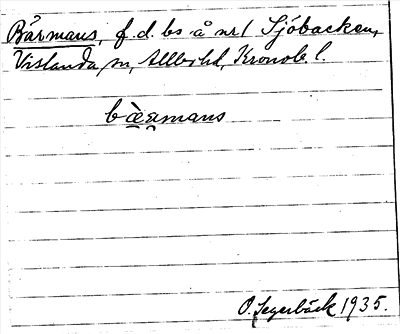 Bärmans, f.d. bs å nr 1 Sjöbacken,
Vislanda sn, Allbo hd, Kronob. l.
bæ̀ɹmans
O. Segerbäck 1935.